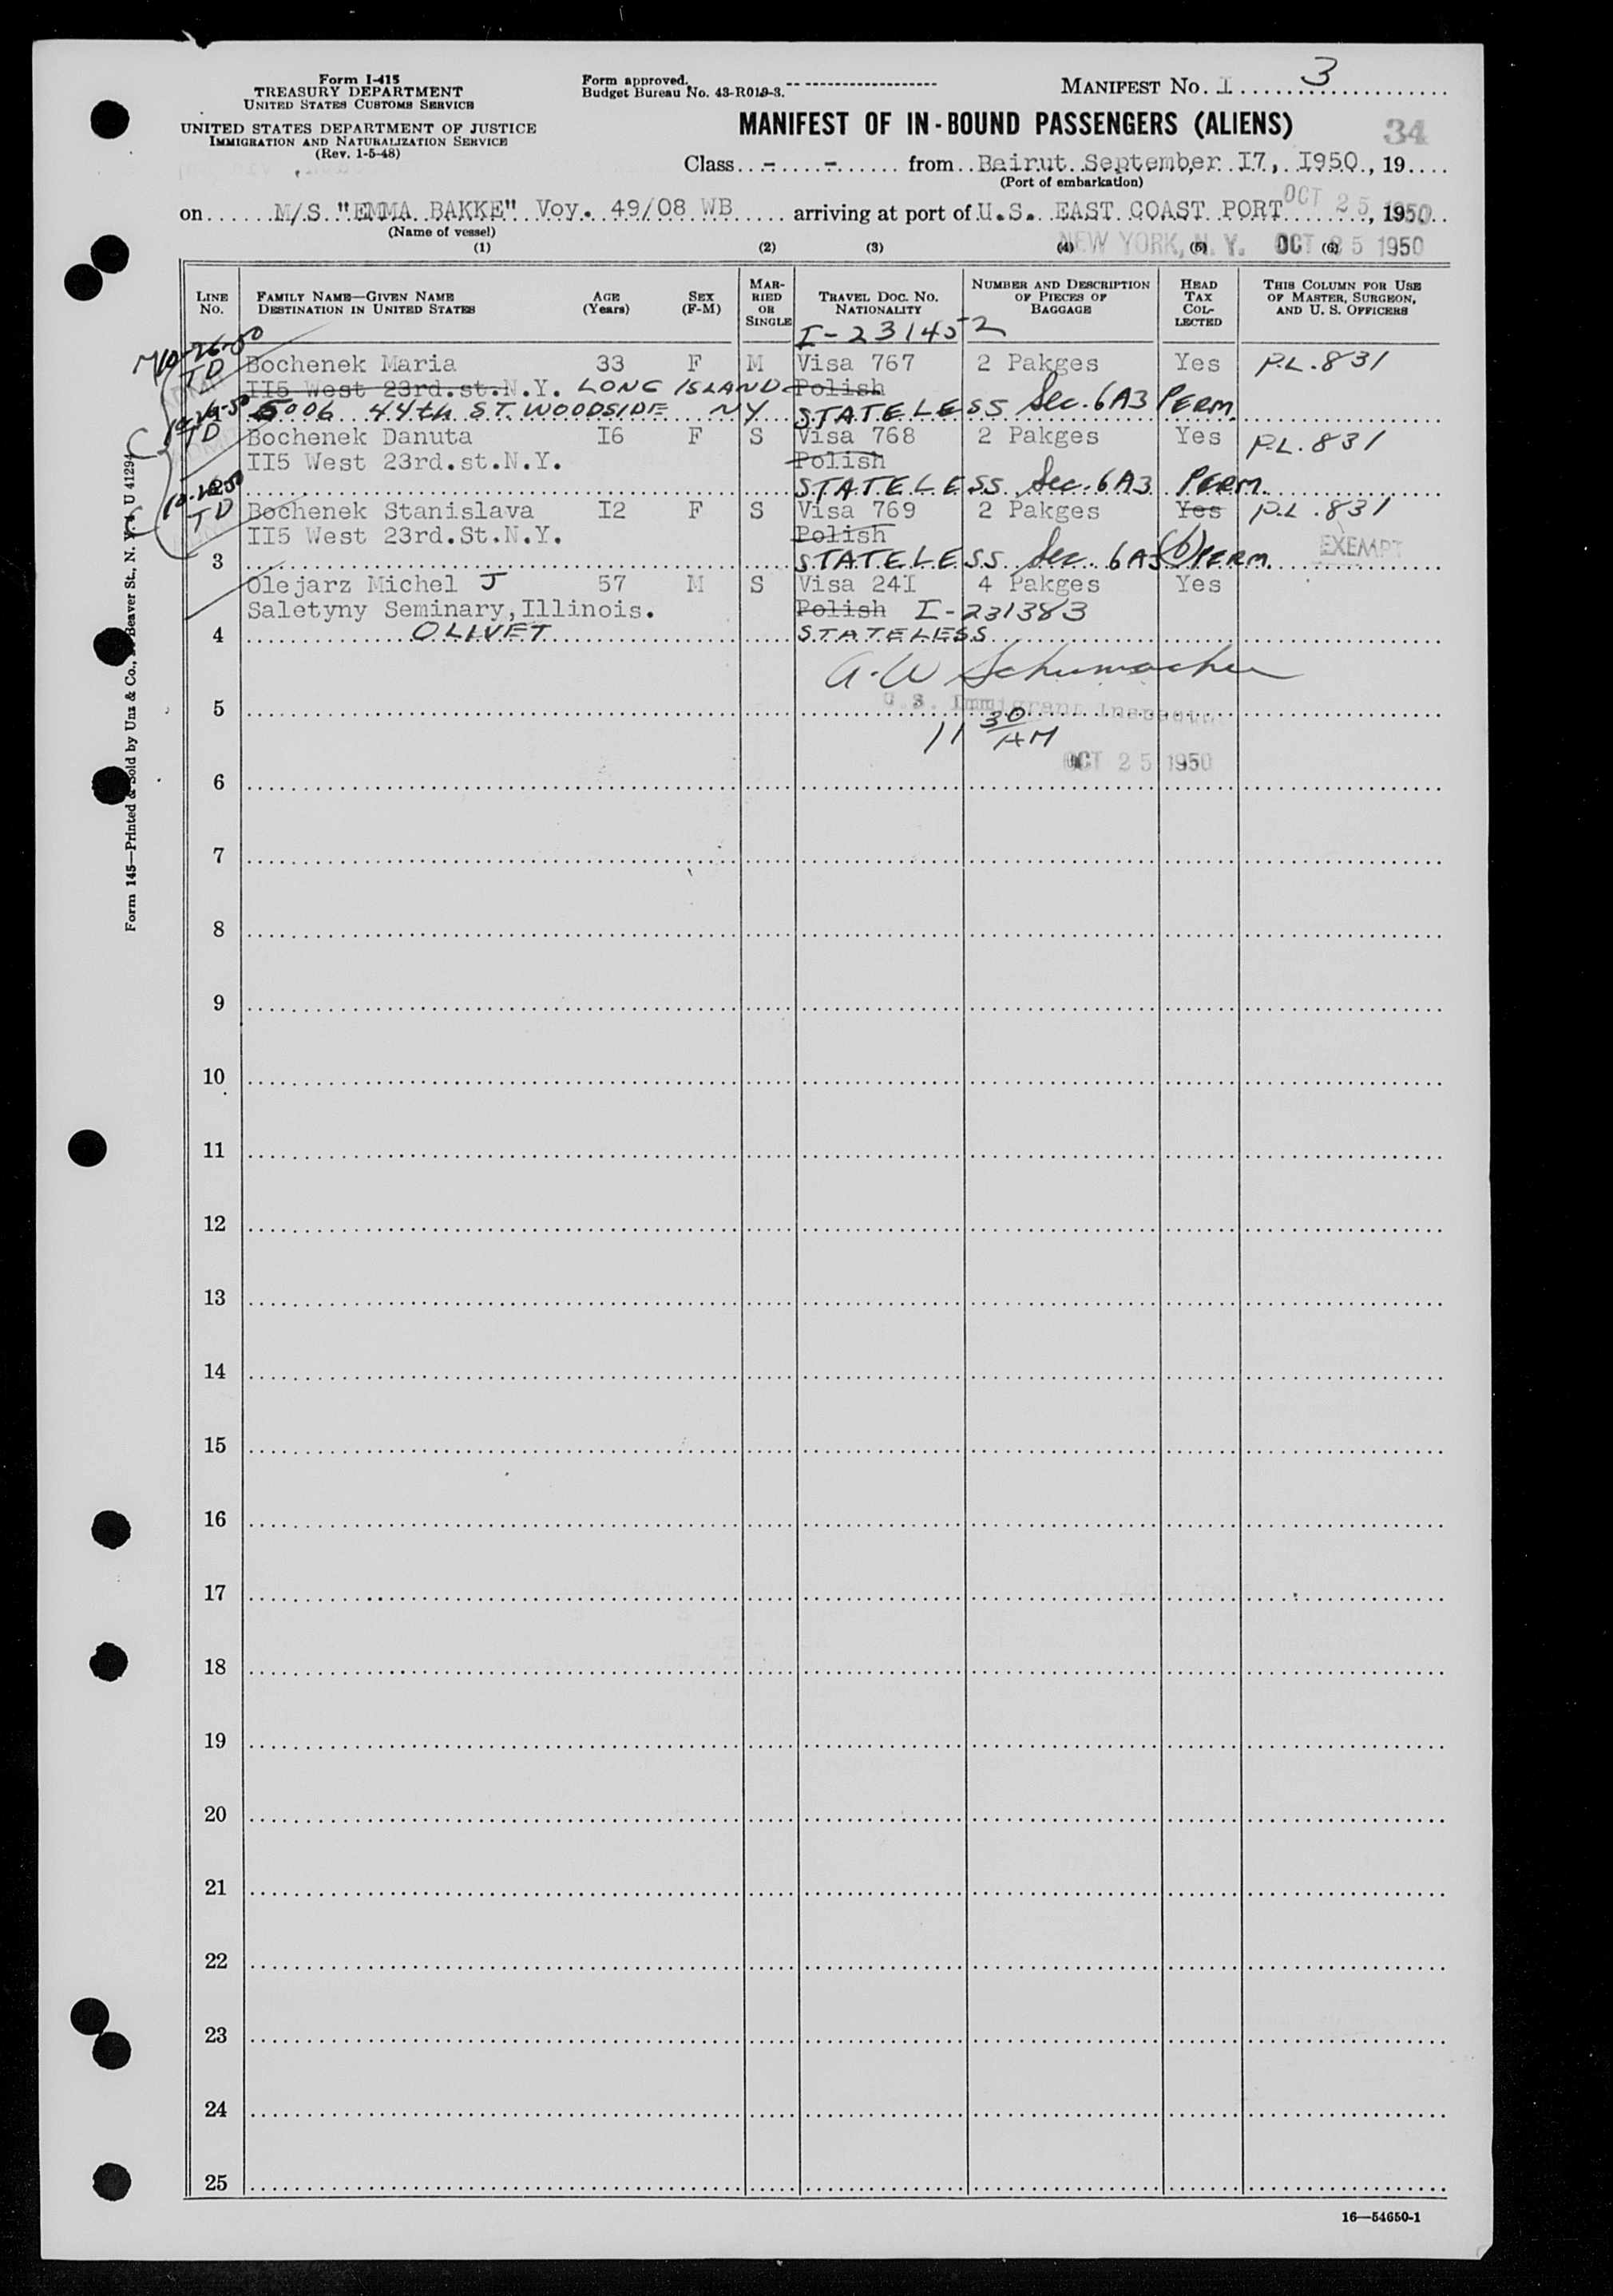 Form I-415
TREASURY DEPARTMENT
UNITED STATES CUSTOMS SERVICE
UNITED STATES DEPARTMENT OF JUSTICE
IMMIGRATION AND NATURALIZATION SERVICE
(Rev. 1-5-48)
Form approved.
Budget Bureau No. 43-R019-3.
MANIFEST No. I 3
MANIFEST OF IN-BOUND PASSENGERS (ALIENS)
34
Class - - from Beirut September I7, I950, 19
(Port of embarkation)
on M/S "EMMA BAKKE" Voy. 49/08 WB arriving at port of U.S. EAST COAST PORT OCT 25 1950, 19
(Name of vessel)
NEW YORK, N. Y. OCT 25 1950
(1) (2) (3) (4) (5) (6)
LINE No. FAMILY NAME—GIVEN NAME DESTINATION IN UNITED STATES AGE (Years) SEX (F-M) MARRIED OR SINGLE TRAVEL DOC. NO. NATIONALITY NUMBER AND DESCRIPTION OF PIECES OF BAGGAGE HEAD TAX COLLECTED THIS COLUMN FOR USE OF MASTER, SURGEON, AND U. S. OFFICERS
I-231452
10-26-50
TD Bochenek Maria 33 F M Visa 767 2 Pakges Yes P.L. 831
II5 West 23rd.st.N.Y. LONG ISLAND Polish
5006 44th ST. WOODSIDE NY STATELESS Sec. 6A3 PERM.
TD Bochenek Danuta I6 F S Visa 768 2 Pakges Yes P.L. 831
II5 West 23rd.st.N.Y. Polish
STATELESS Sec. 6A3 PERM.
TD Bochenek Stanislava I2 F S Visa 769 2 Pakges Yes P.L. 831
II5 West 23rd.St.N.Y. Polish EXEMPT
3 STATELESS Sec. 6A3(b) PERM.
Olejarz Michel J 57 M S Visa 24I 4 Pakges Yes
Saletyny Seminary,Illinois. Polish I-231383
4 OLIVET STATELESS
A.W Schumacher
5 U. S. Immigrant Inspector
11 30 AM
OCT 25 1950
6
7
8
9
10
11
12
13
14
15
16
17
18
19
20
21
22
23
24
25
16—54650-1